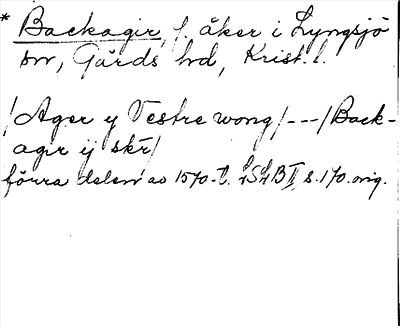 * Backagir, f. åker i Lyngsjö
sn, Gärds hd, Krist. l.
/Ager y Vestre wong/---/Back-
agir ij skr/
förra delen av 1570-t. LSLB II, s. 170. orig.